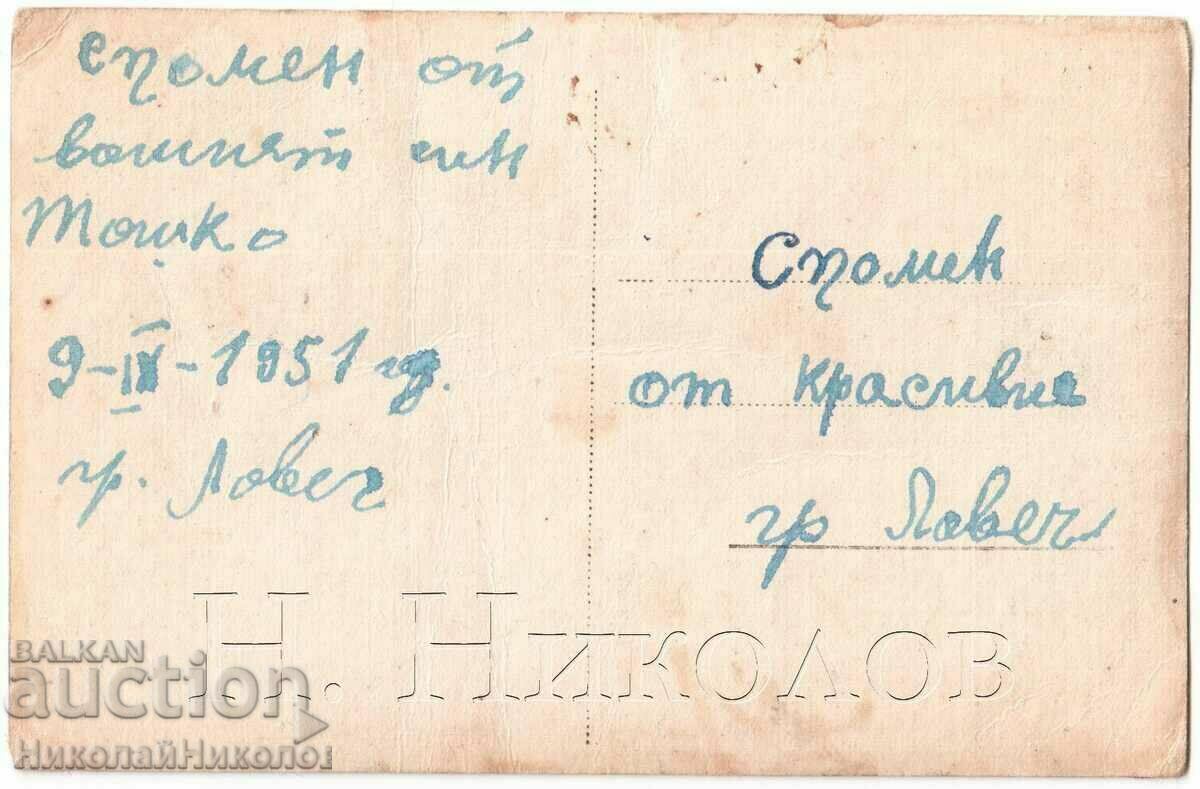 спомен от
вашият син
Тошко
9-IX-1951 год.
гр. Ловеч
Спомен
от красивие
гр Ловеч
Н. Николов
BALKAN
auction
НиколайНиколов